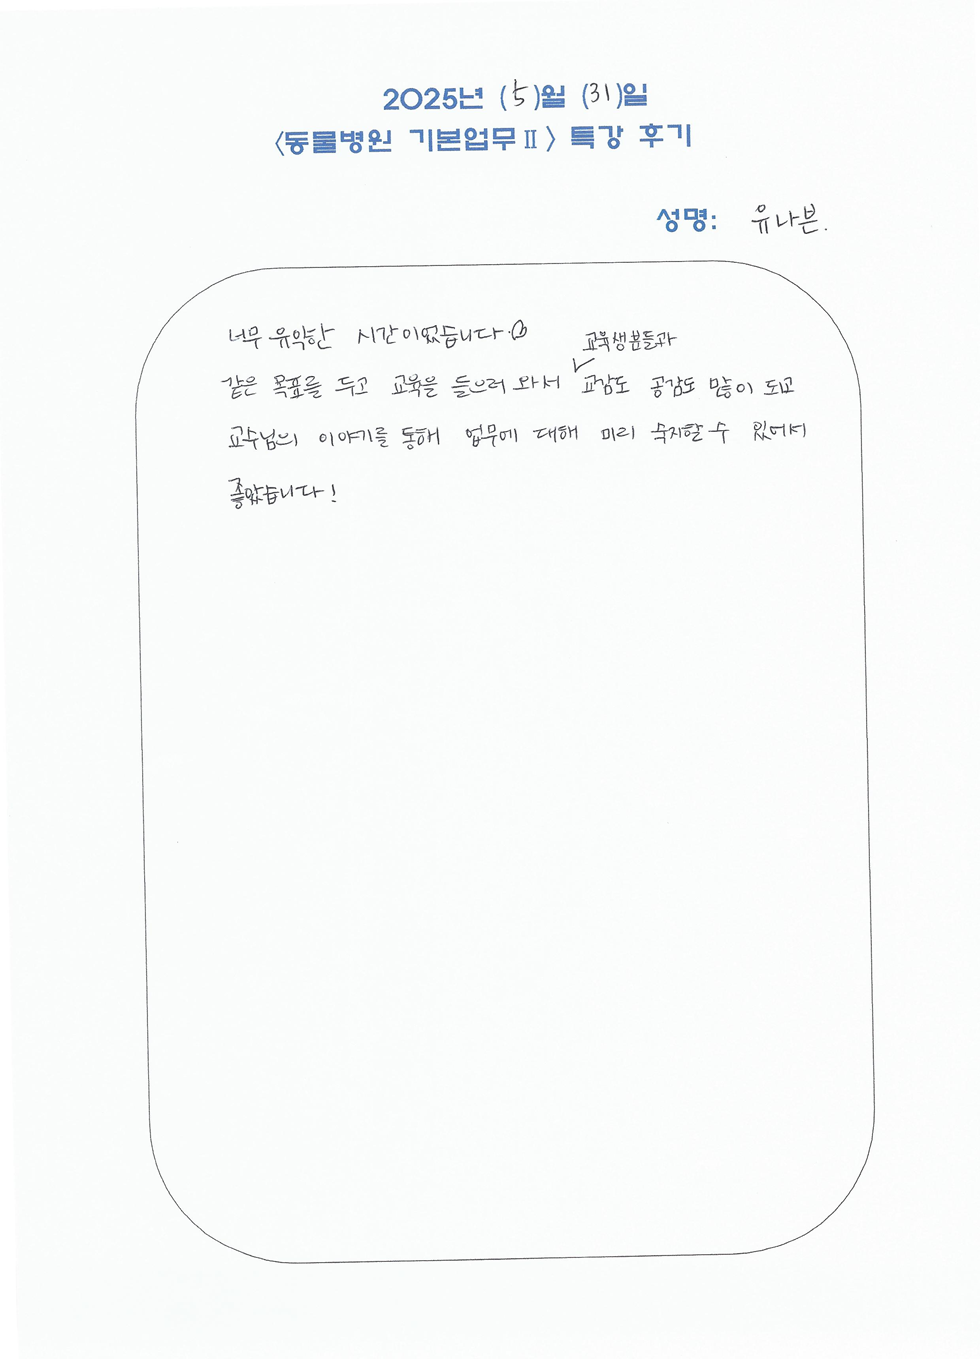 2025년 (5)월 (31)일
<동물병원 기본업무Ⅱ> 특강 후기
성명: 유나븐.
너무 유익한 시간이었습니다.
교육생분들과
같은 목표를 두고 교육을 들으러 와서 ✓ 교감도 공감도 많이 되고
교수님의 이야기를 통해 업무에 대해 미리 숙지할 수 있어서
좋았습니다!